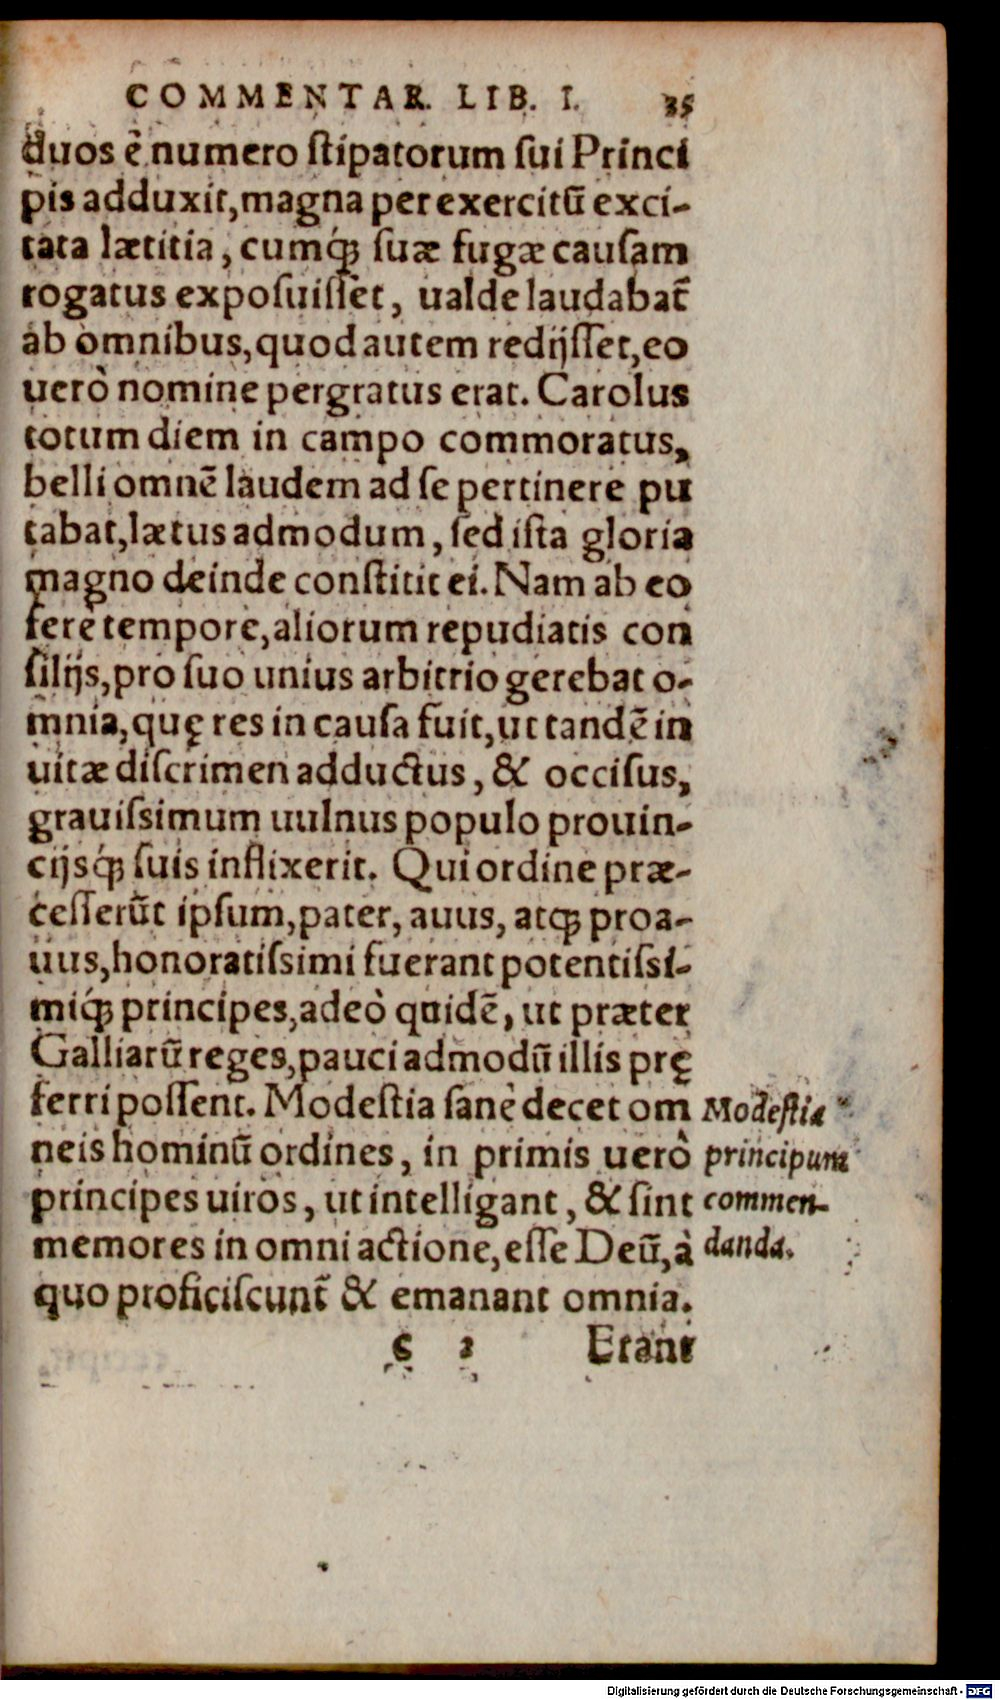 COMMENTAR. LIB. I. 35
duos è numero ſtipatorum ſui Princi
pis adduxit, magna per exercitū exci-
tata lætitia, cumq́ꝫ ſuæ fugæ cauſam
rogatus expoſuiſſet, ualde laudabat̃
ab omnibus, quod autem redijſſet, eo
uerò nomine pergratus erat. Carolus
totum diem in campo commoratus,
belli omnē laudem ad ſe pertinere pu
tabat, lætus admodum, ſed iſta gloria
magno deinde conſtitit ei. Nam ab eo
ferè tempore, aliorum repudiatis con
ſilijs, pro ſuo unius arbitrio gerebat o-
mnia, quę res in cauſa fuit, ut tandē in
uitæ diſcrimen adductus, & occiſus,
grauiſsimum uulnus populo prouin-
cijsq́ꝫ ſuis inflixerit. Qui ordine præ-
ceſſerūt ipſum, pater, auus, atqꝫ proa-
uus, honoratiſsimi fuerant potentiſsi-
miq́ꝫ principes, adeò quidē, ut præter
Galliarū reges, pauci admodū illis prę
ferri poſſent. Modeſtia ſanè decet om
neis hominū ordines, in primis uerò
principes uiros, ut intelligant, & ſint
memores in omni actione, eſſe Deū, à
quo proficiſcunt̃ & emanant omnia.
Modeſtia
principum
commen-
danda.
c 2 Erant
Digitalisierung gefördert durch die Deutsche Forschungsgemeinschaft - DFG